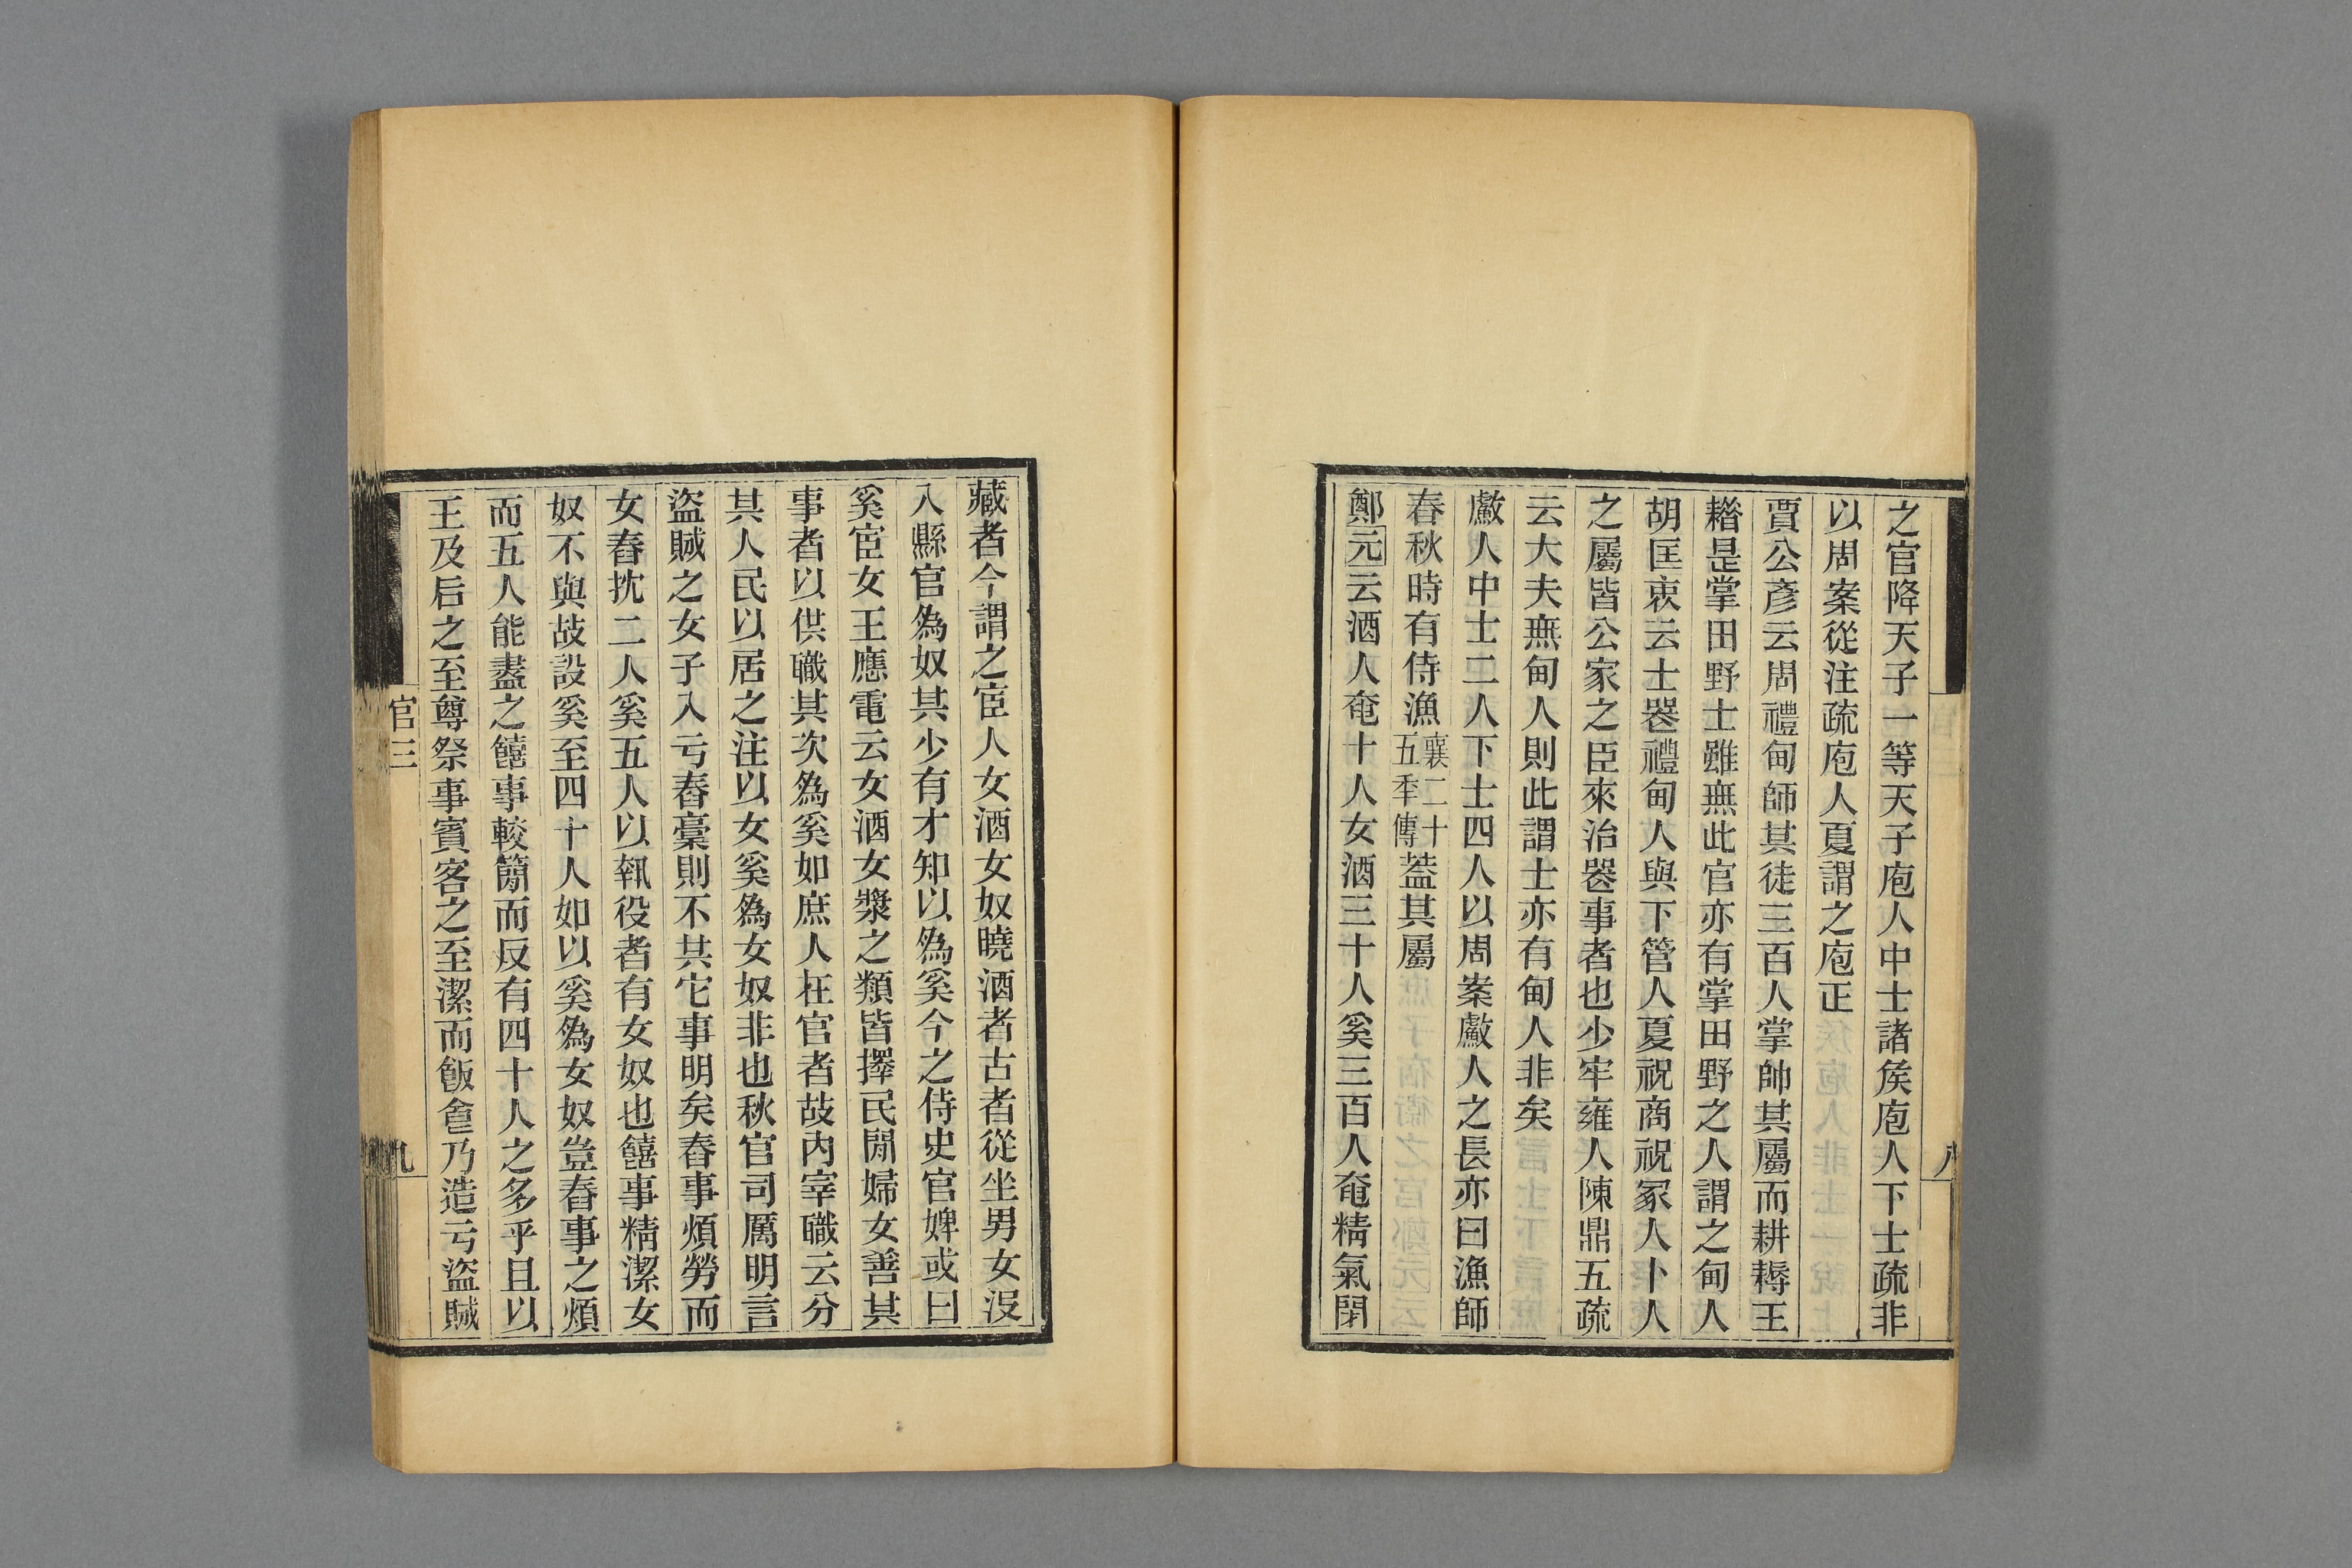 之官降天子一等天子庖人中士諸矦庖人下士疏非
以周案從注疏庖人夏謂之庖正
賈公彥云周禮甸師其徒三百人掌帥其屬而耕耨王
耤是掌田野士雖無此官亦有掌田野之人謂之甸人
胡匡衷云士器禮甸人與下管人夏祝商祝冢人卜人
之屬皆公家之臣來治器事者也少牢雍人陳鼎五疏
云大夫無甸人則此謂士亦有甸人非矣
䱷人中士二人下士四人以周案䱷人之長亦曰漁師
春秋時有侍漁襄二十五年傳葢其屬
鄭元云酒人奄十人女酒三十人奚三百人奄精氣閉
八
藏者今謂之宦人女酒女奴曉酒者古者從坐男女沒
入縣官爲奴其少有才知以爲奚今之侍史官婢或曰
奚宦女王應電云女酒女漿之類皆擇民閒婦女善其
事者以供職其次爲奚如庶人在官者故內宰職云分
其人民以居之注以女奚爲女奴非也秋官司厲明言
盜賊之女子入亏舂稾則不共它事明矣舂事煩勞而
女舂抌二人奚五人以執役者有女奴也饎事精潔女
奴不與故設奚至四十人如以奚爲女奴豈舂事之煩
而五人能盡之饎事較簡而反有四十人之多乎且以
王及后之至尊祭事賓客之至潔而飯食乃造亏盜賊
官三
九